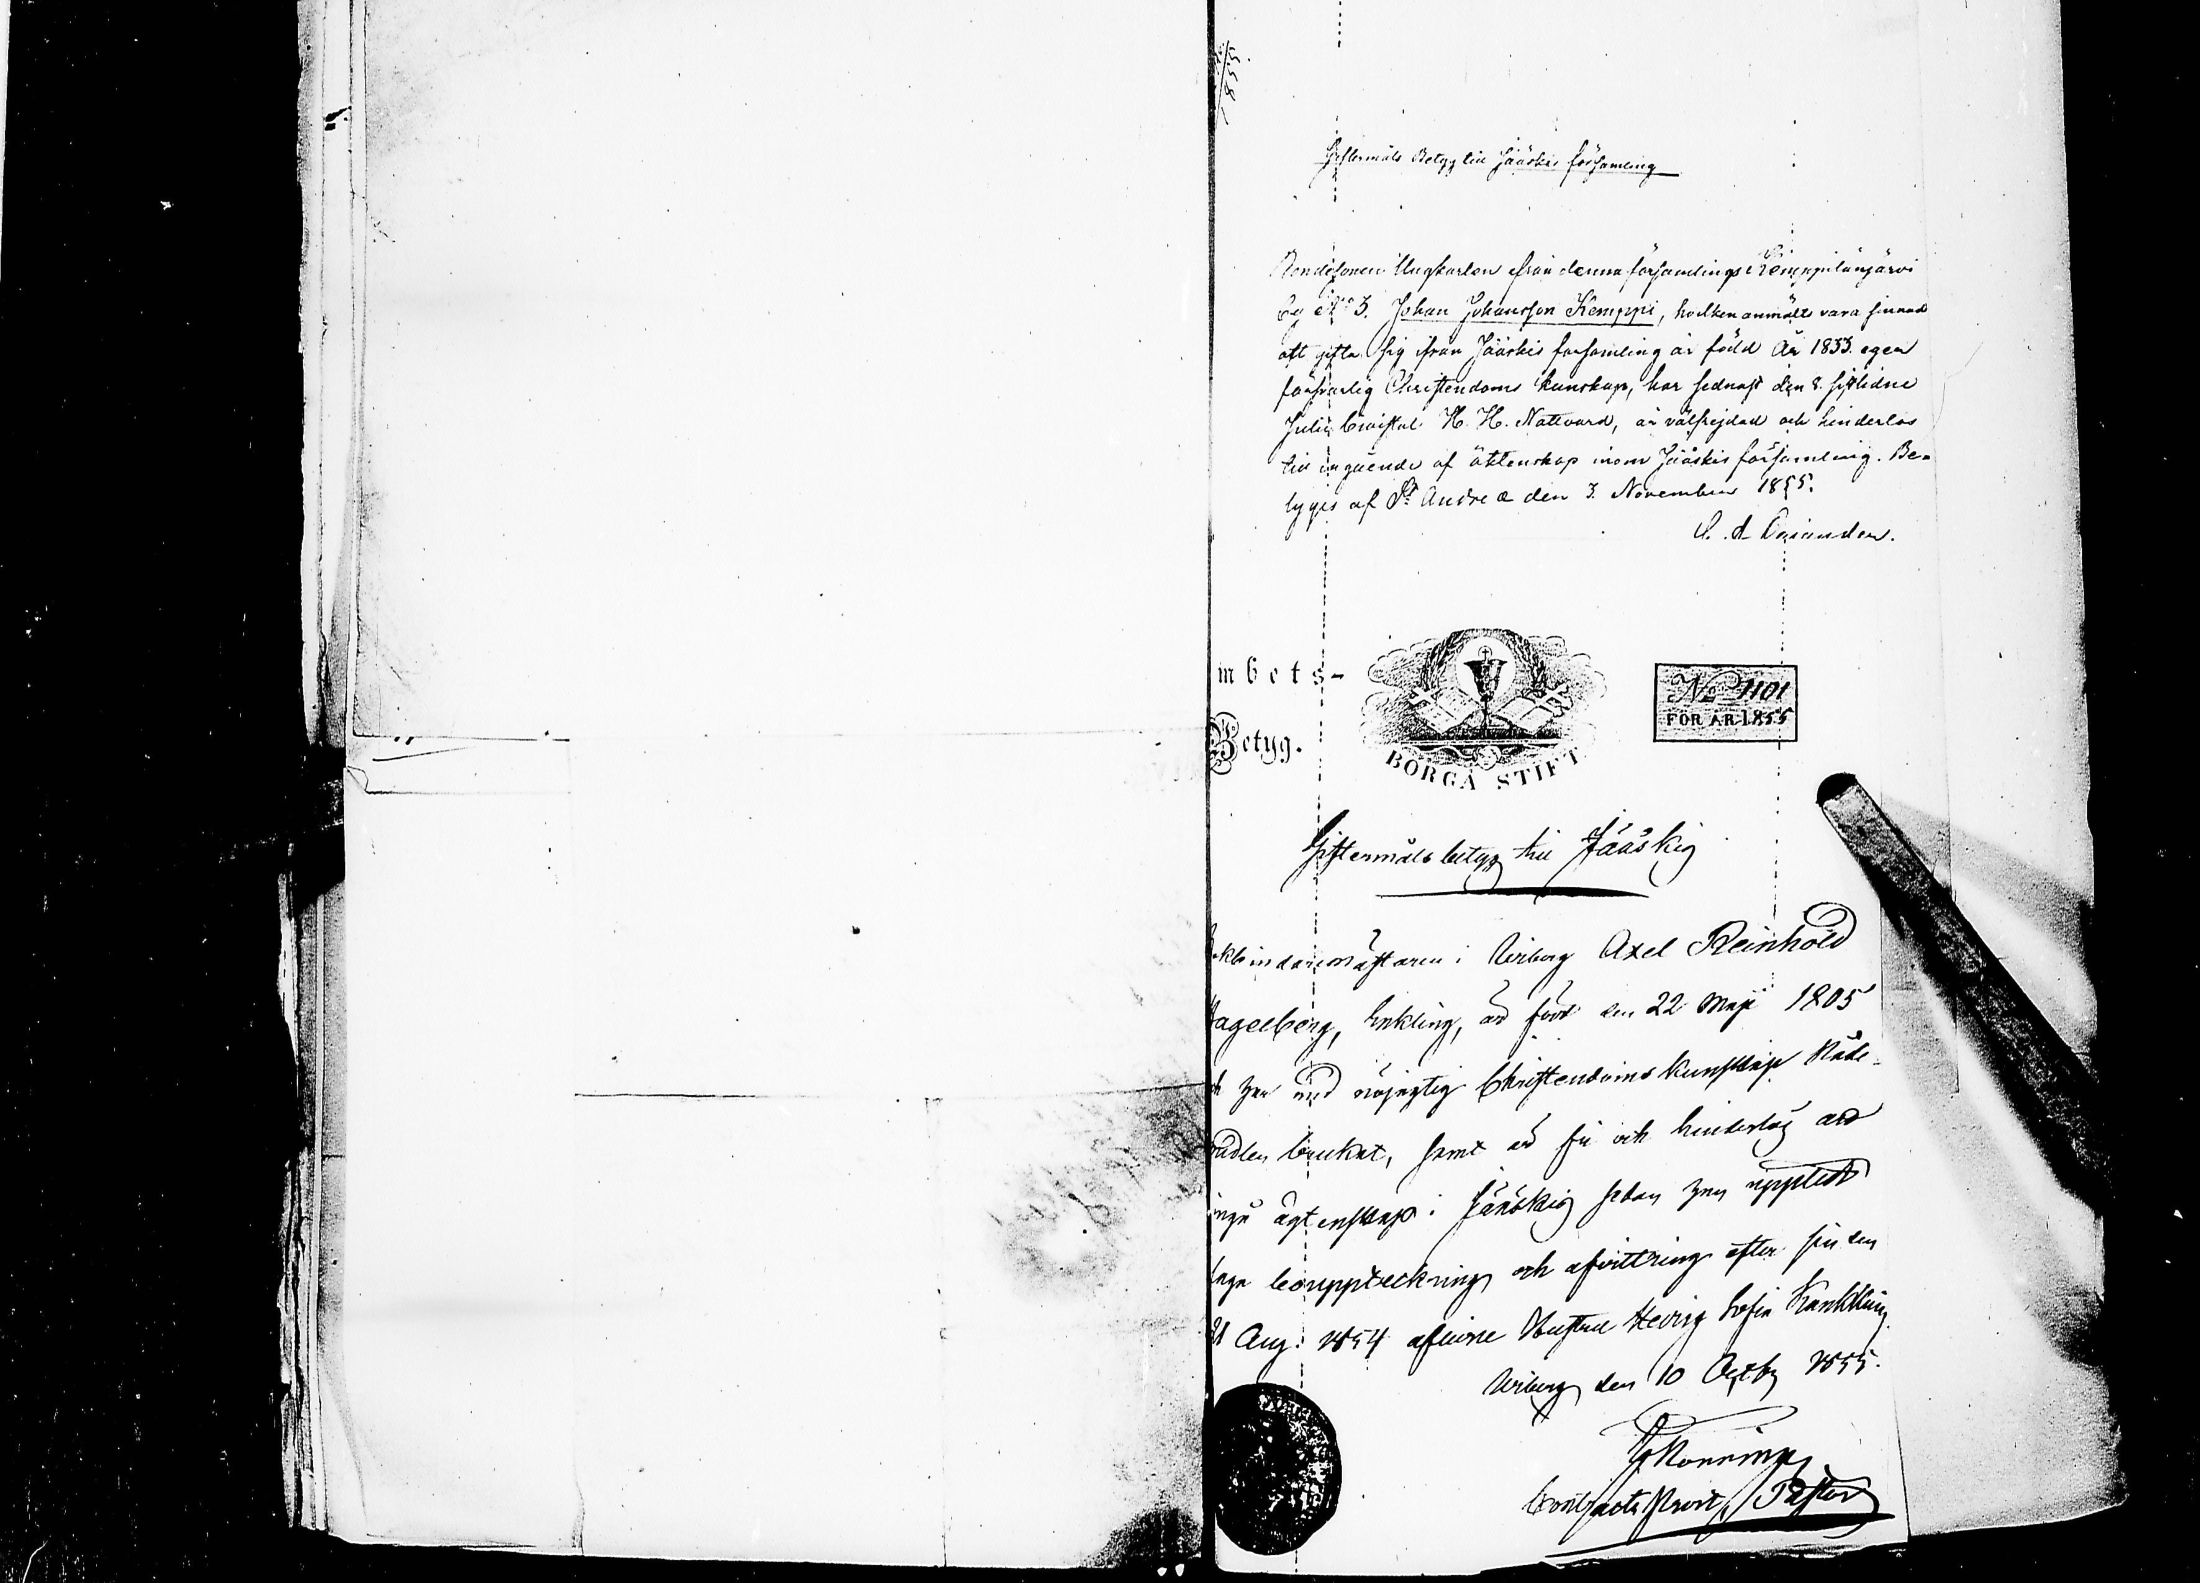 1855.
Giftermåls Betyg till Jääskis församling
Bondesonen Ungkarlen från denna församlings Kemppilänjärvi
by No 3. Johan Johansson Kemppi, hvilken anmält vara sinnad
att gifta sig ifrån Jääskis församling är född År 1833. eger
försvarlig Christendoms kunskap, har sednast den 8. sistlidne
Julii bevistat H. H. Nattvard, är välfrejdad och hinderlös
till ingående af äktenskap inom Jääskis församling. Be-
tygas af St Andreæ den 3. November 1855.
mbets-
Betyg.
BORGÅ STIFT
No 1101
FÖR ÅR 1855
Giftermåls betyg till Jääskis
okbindaremästaren i Wiborg Axel Reinhold
Hagelberg, Enkling, är född den 22 Maji 1805
med nöjagtig Christendoms kunskap Nåde-
medlen brukat, samt är fri och hinderlös att
ingå ägtenskap i Jääskis sedan han upptett
laga bouppteckning och afvittring efter sin den
21 Aug: 1854 aflidne Hustru Hedvig Sofia
Wiborg den 10 Octbr 1855.
Contracts Prost, Pastor